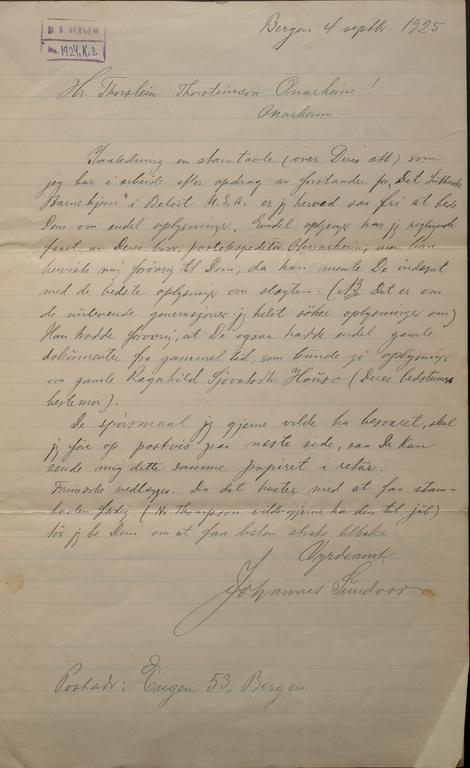 Bergen 4 septbr. 1925
U. B. BERGEN
Ms. 1924, K. 2
Hr. Thorstein Thorsteinson Onarheim!
Onarheim.
Ianledning en stamtavle (over Deres ætt) som
jeg har i arbeide efter opdrag av forstander for "Det Lutherske
Barnehjem" i Beloit U.S.A. er jeg herved saa fri at bede
Dem om endel oplysninger. Endel oplysninger har jeg rigtignok
faaet av Deres bror, postekspeditør Onarheim, men han
henviste mig forøvrig til Dem, da han mente De indsat
med de bedste oplysninger om slægten. (NB Det er om
de nulevende generasjoner jeg helst söker oplysninger om)
Han hadde forøvrig, at De ogsaa hadde endel gamle
dokumenter fra gammel tid, som kunde gi oplysninger
om gamle Ragnhild Sjovatsdtr. (Deres bedstemors
bestemor).
De spörsmaal jeg gjerne vilde ha besvaret, skal
jeg föie op postvis paa næste side, saa De kan
sende mig dette samme papiret i retur.
Frimerke vedlægges. Da det haster med at faa stam-
tavlen færdig (Hr. Thompson vilde gjerne ha den til jul)
tör jeg be Dem om at faa listen straks tilbake.
Ærbødigst
Johannes Sundvor
Postadr: Engen 53, Bergen.